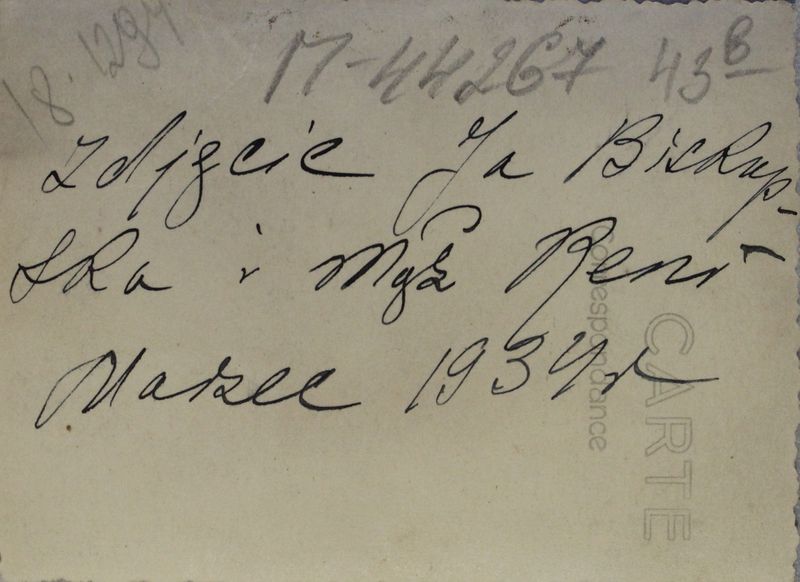 18.1294
M-44267 43B
Zdjęcie Ja Biskup-
ska i mąż Reni
Marzec 1934r
CARTE
Correspondance